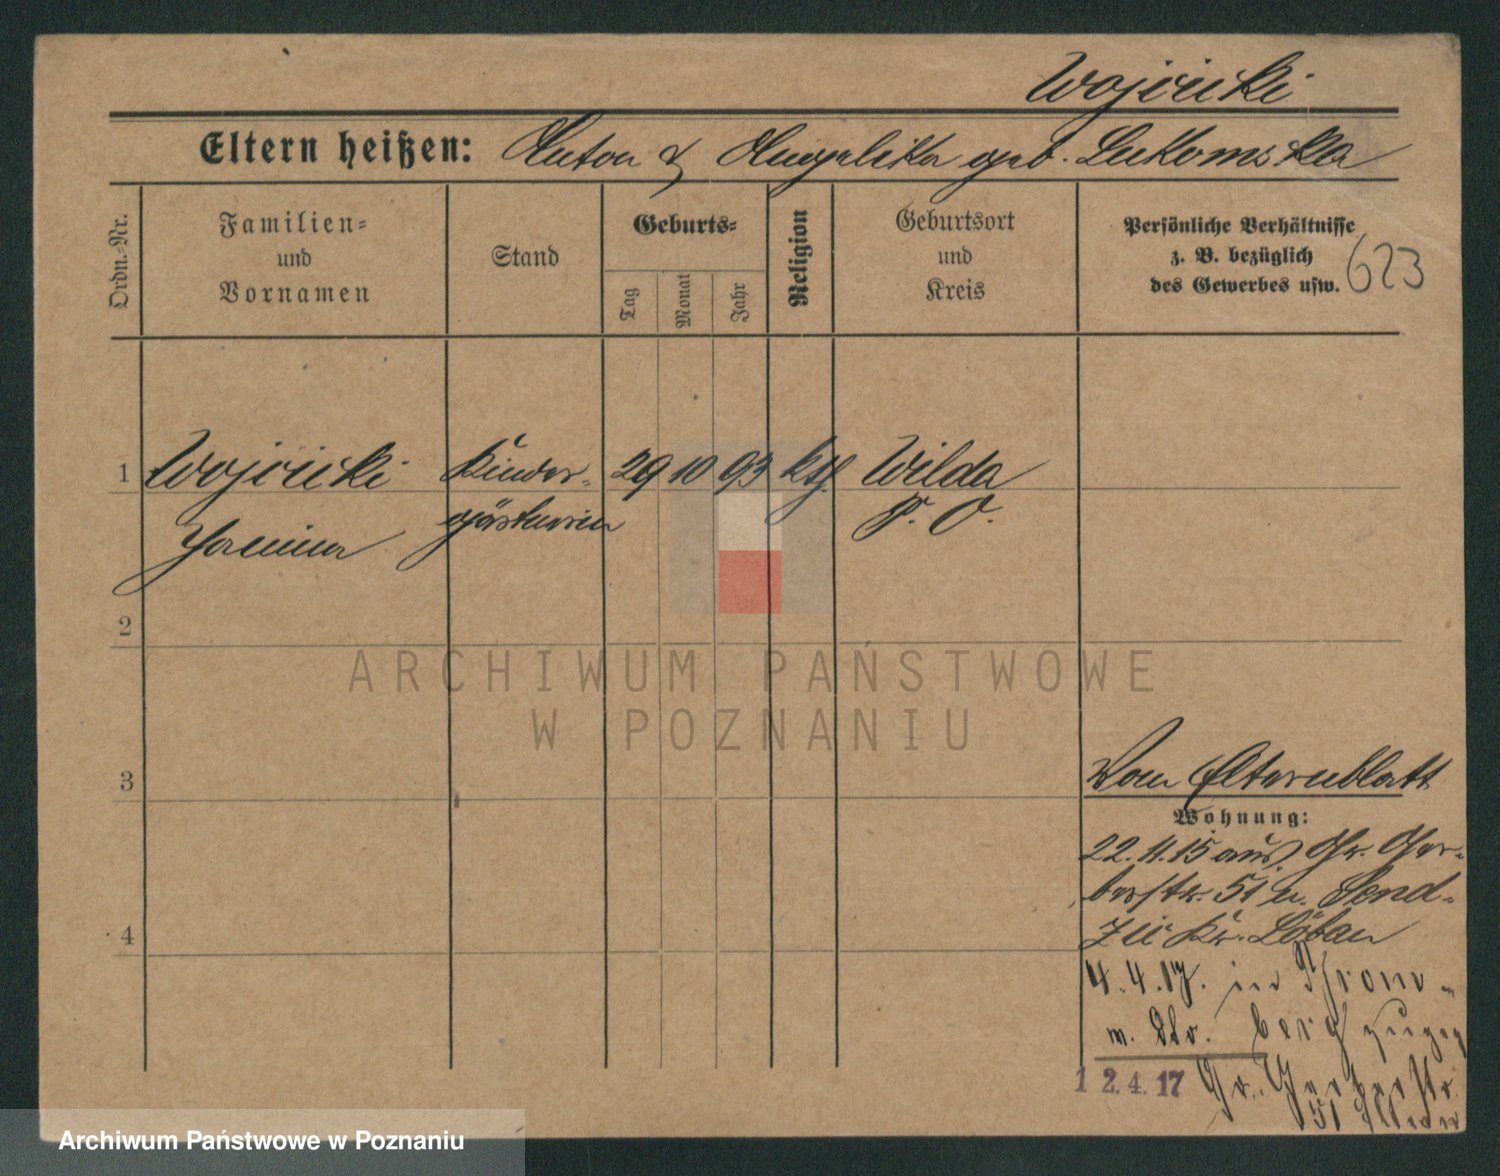 Wojcicki
Eltern heißen: Anton & Angelika geb. Lukomska
Ordn.-Nr.
Familien-
und
Vornamen
Stand
Geburts-
Tag
Monat
Jahr
Religion
Geburtsort
und
Kreis
Persönliche Verhältnisse
z. B. bezüglich
des Gewerbes usw.
623
1 Wojcicki Kinder- 29 10 93 kth. Wilda
Janina gärtnerin P. O.
2
ARCHIWUM PAŃSTWOWE
W POZNANIU
3
Vom Elternblatt
Wohnung:
22.11.15 aus Gr. Ger-
berstr. 51 n. Send-
zic Kr. Löbau
4
4.4.17. in
berg
12.4.17 Gr. Gerberstr.
51
Archiwum Państwowe w Poznaniu